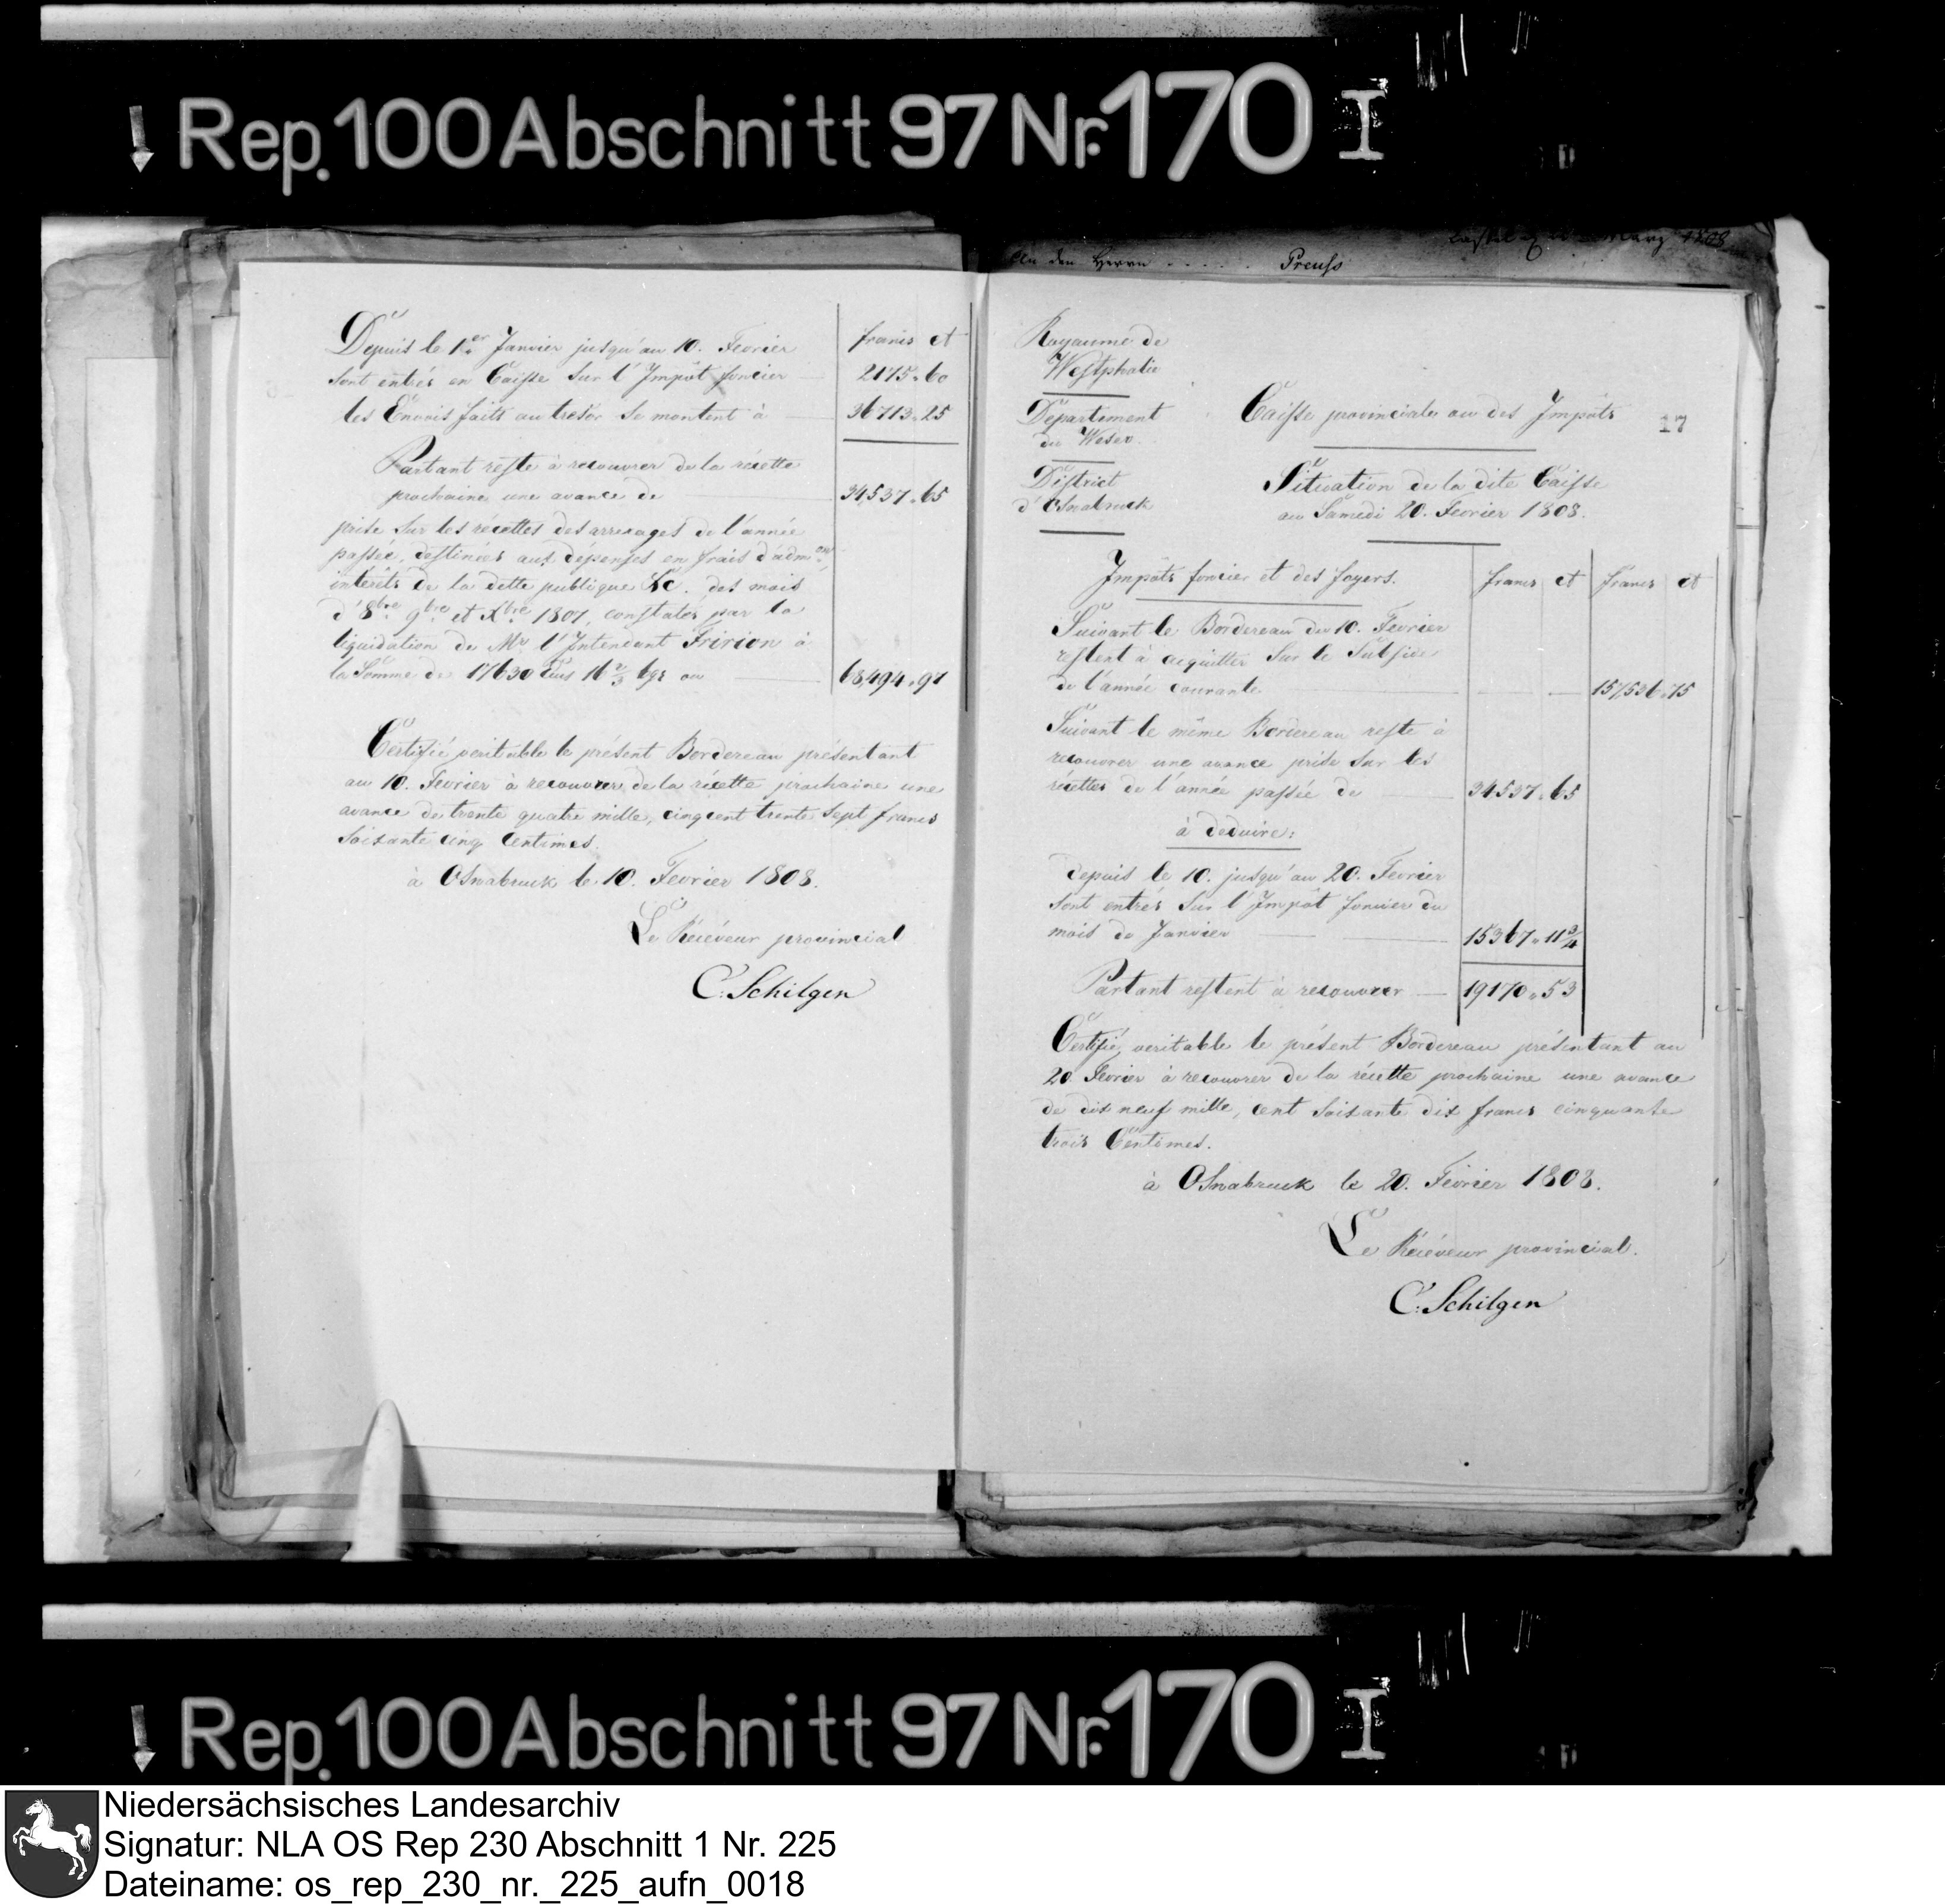 Rep. 100 Abschnitt 97 Nr. 170 I
Depuis le 1er Janvier jusqu'au 10. Fevrier
sont entrés en Caisse sur l'Impôt foncier
les Envois faits au tresor se montent à
Partant reste à recouvrer de la récette
prochaine une avance de
prise sur les récettes des arrerages de l'année
passée, destinées aux dépenses en frais d'admon,
intérêts de la dette publique &c. des mois
d'8bre 9bre et Xbre 1807, constatés par la
liquidation de Mr l'Intendant Fririon à
la Somme de 17630 écus 16 2/3 bgr ou
francs ct
2175 " 60
36713 " 25
34,537 " 65
68,494 " 97
Certifié veritable le présent Bordereau présentant
au 10. Fevrier à recouvrer de la récette prochaine une
avance de trente quatre mille, cinqcent trente sept francs
soixante cinq Centimes.
à Osnabruck le 10. Fevrier 1808.
Le Récéveur provincial
C. Schilgen
März 1808
An den Herrn . . . . . . Preuss
Royaume de
Westphalie
Département
du Weser.
District
d'Osnabruck
Caisse provinciale ou des Impôts
17
Situation de la dite Caisse
au Samedi 20. Fevrier 1808.
Impôts foncier et des foyers.
francs ct francs ct
Suivant le Bordereau du 10. Fevrier
restent à acquitter sur le Subside
de l'année courante 157,536 " 75
Suivant le même Bordereau reste à
recouvrer une avance prise sur les
récettes de l'année passée de 34537 " 65
à deduire:
depuis le 10. jusqu'au 20. Fevrier
sont entrés sur l'Impôt foncier du
mois de Janvier 15367 " 11 3/4
Partant restent à recouvrer 19170 " 53
Certifié veritable le présent Bordereau présentant au
20. Fevrier à recouvrer de la récette prochaine une avance
de dix neuf mille, cent soixante dix francs cinquante
trois Centimes.
à Osnabruck le 20. Fevrier 1808.
Le Récéveur provincial.
C. Schilgen
Rep. 100 Abschnitt 97 Nr. 170 I
Niedersächsisches Landesarchiv
Signatur: NLA OS Rep 230 Abschnitt 1 Nr. 225
Dateiname: os_rep_230_nr._225_aufn_0018